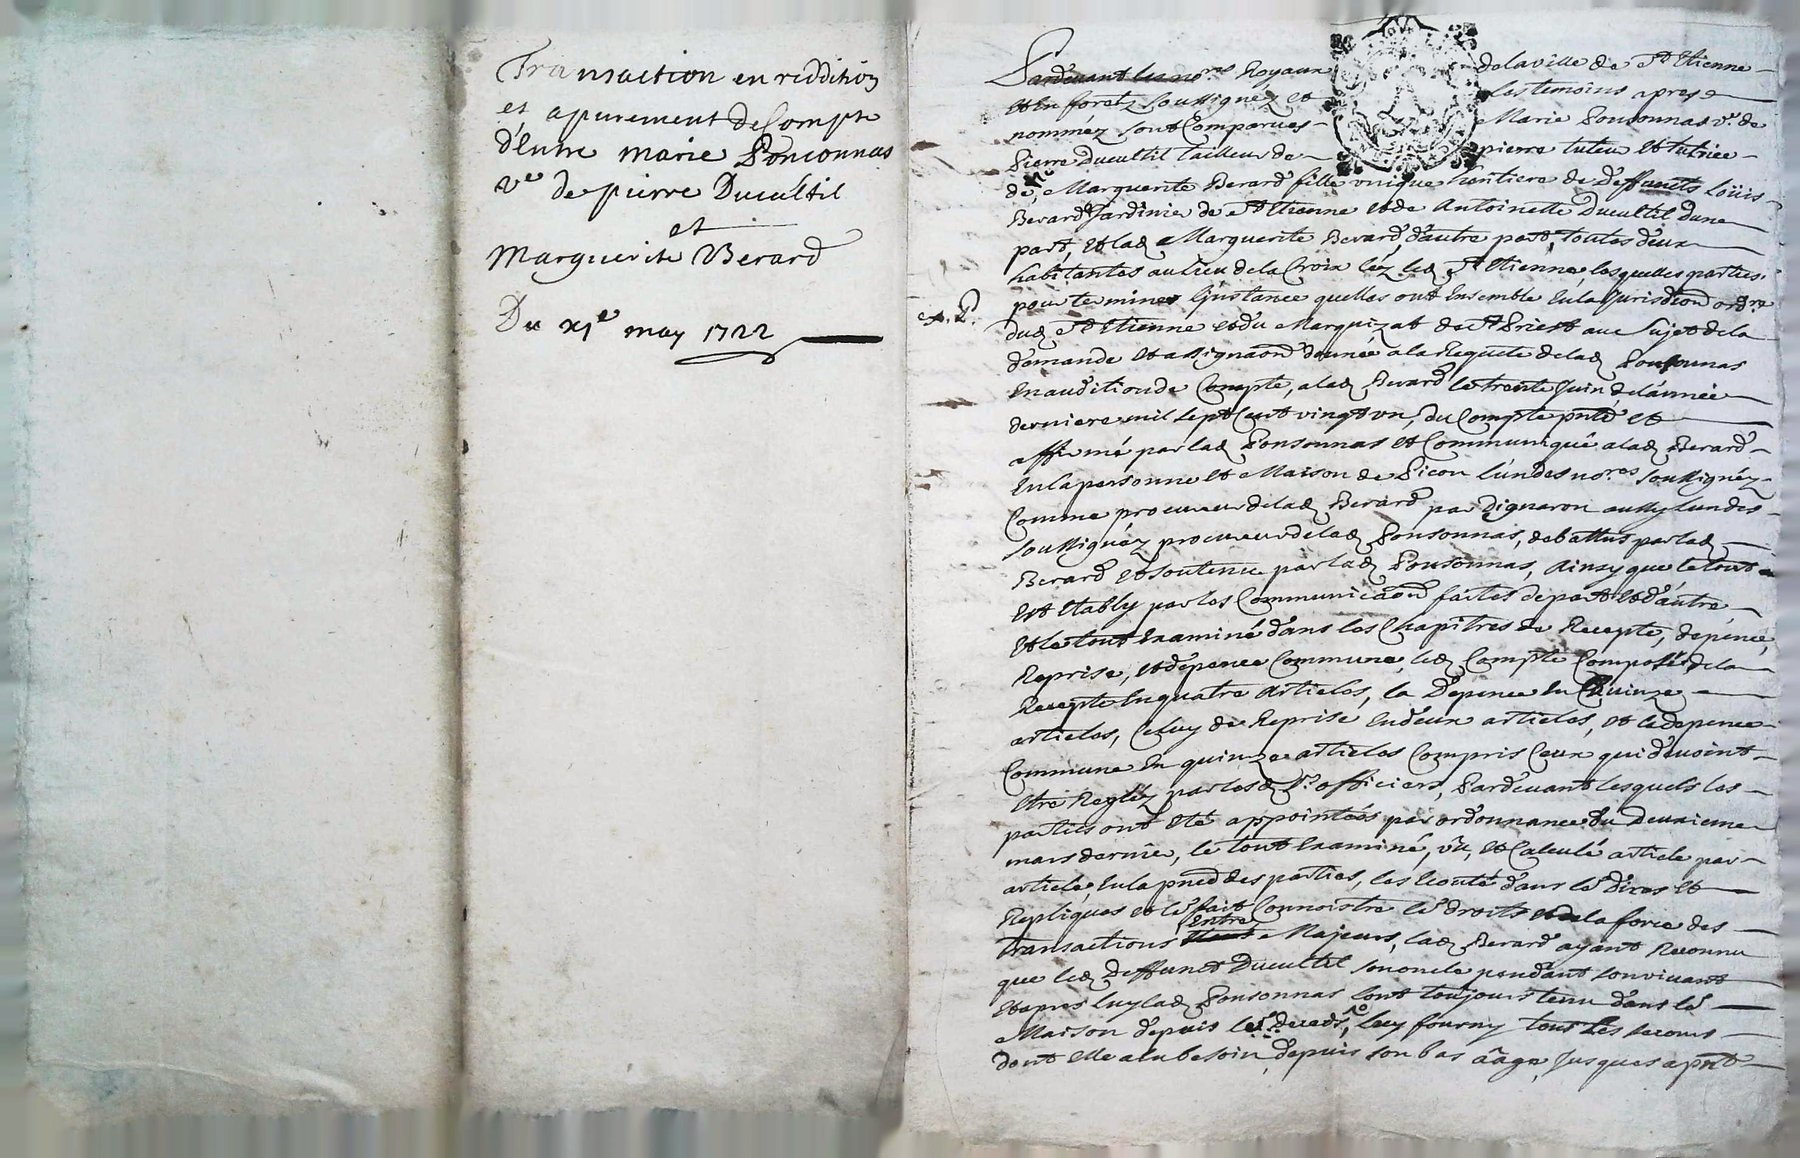 Transaction en reddition
et apurement de Compte
d'Entre marie Ponconnas
ve de pierre Ducultil
et
Marguerite Berard
Du xje may 1722
Pardevant les nores Royaux de la ville de St Etienne
et en foretz soussignez et les temoins apres
nommez sont Comparues Marie Ponsonnas ve de
Pierre Ducultil tailleur de pierre tuteur et tutrice
de Marguerite Berard fille unique heritiere de deffunts Loüis
Berard Jardinier de St Etienne et de Antoinette Ducultil d'une
part, et lad Marguerite Berard d'autre part, toutes deux
habitantes au lieu de la Croix léz led St Etienne, lesquelles parties
pour terminer l'jnstance quelles ont Ensemble En la Jurisdiõn ordre
A. P.
dud St Etienne et du Marquizat de St Priest au sujet de la
demande et assignaõn donnée a la Requete de lad Ponsonnas
En audition de Compte, a lad Berard le trente Juin de l'année
derniere mil sept Cent vingt un, du Compte pnté et
affirmé par lad Ponsonnas et Communiqué a lad Berard
En la personne et Maison de Picon l'un des nores soussignéz
Comme procureur de lad Berard par Dignaron aussy l'un des
soussignéz procureur de lad Ponsonnas, debattus par lad
Berard et soutenu par lad Ponsonnas, Ainsy que le tout
Est Etably par les Communicaõns faites de part et d'autre
Et le tout Examiné dans les Chapitres de Recepte, depence,
Reprise, et depence Commune, led Compte Composé, de la
Recepte En quatre articles, la Depence En Quinze
articles, Celuy de Reprise En deux articles, et la depence
Commune En quinze articles Compris Ceux qui devoint
Etre Regléz par lesd Srs officiers, Pardevant lesquels les
parties ont Eté appointées par ordonnance du Deuxieme
mars dernier, le tout Examiné, vû, et Calculé article par
article, En la pnce des parties, les Ecouté dans le dires et
Repliques et le fait Connoistre le droits et de la force des
transactions Entre Majeurs, lad Berard ayant Reconnu
que led Deffunct Ducultil son oncle pendant son vivant
Et apres luy lad Ponsonnas l'ont toujours tenu dans le
Maison depuis le decedz, luy fourny tous les secours
dont Elle a eu besoin, depuis son bas aâge, Jusques a pnt